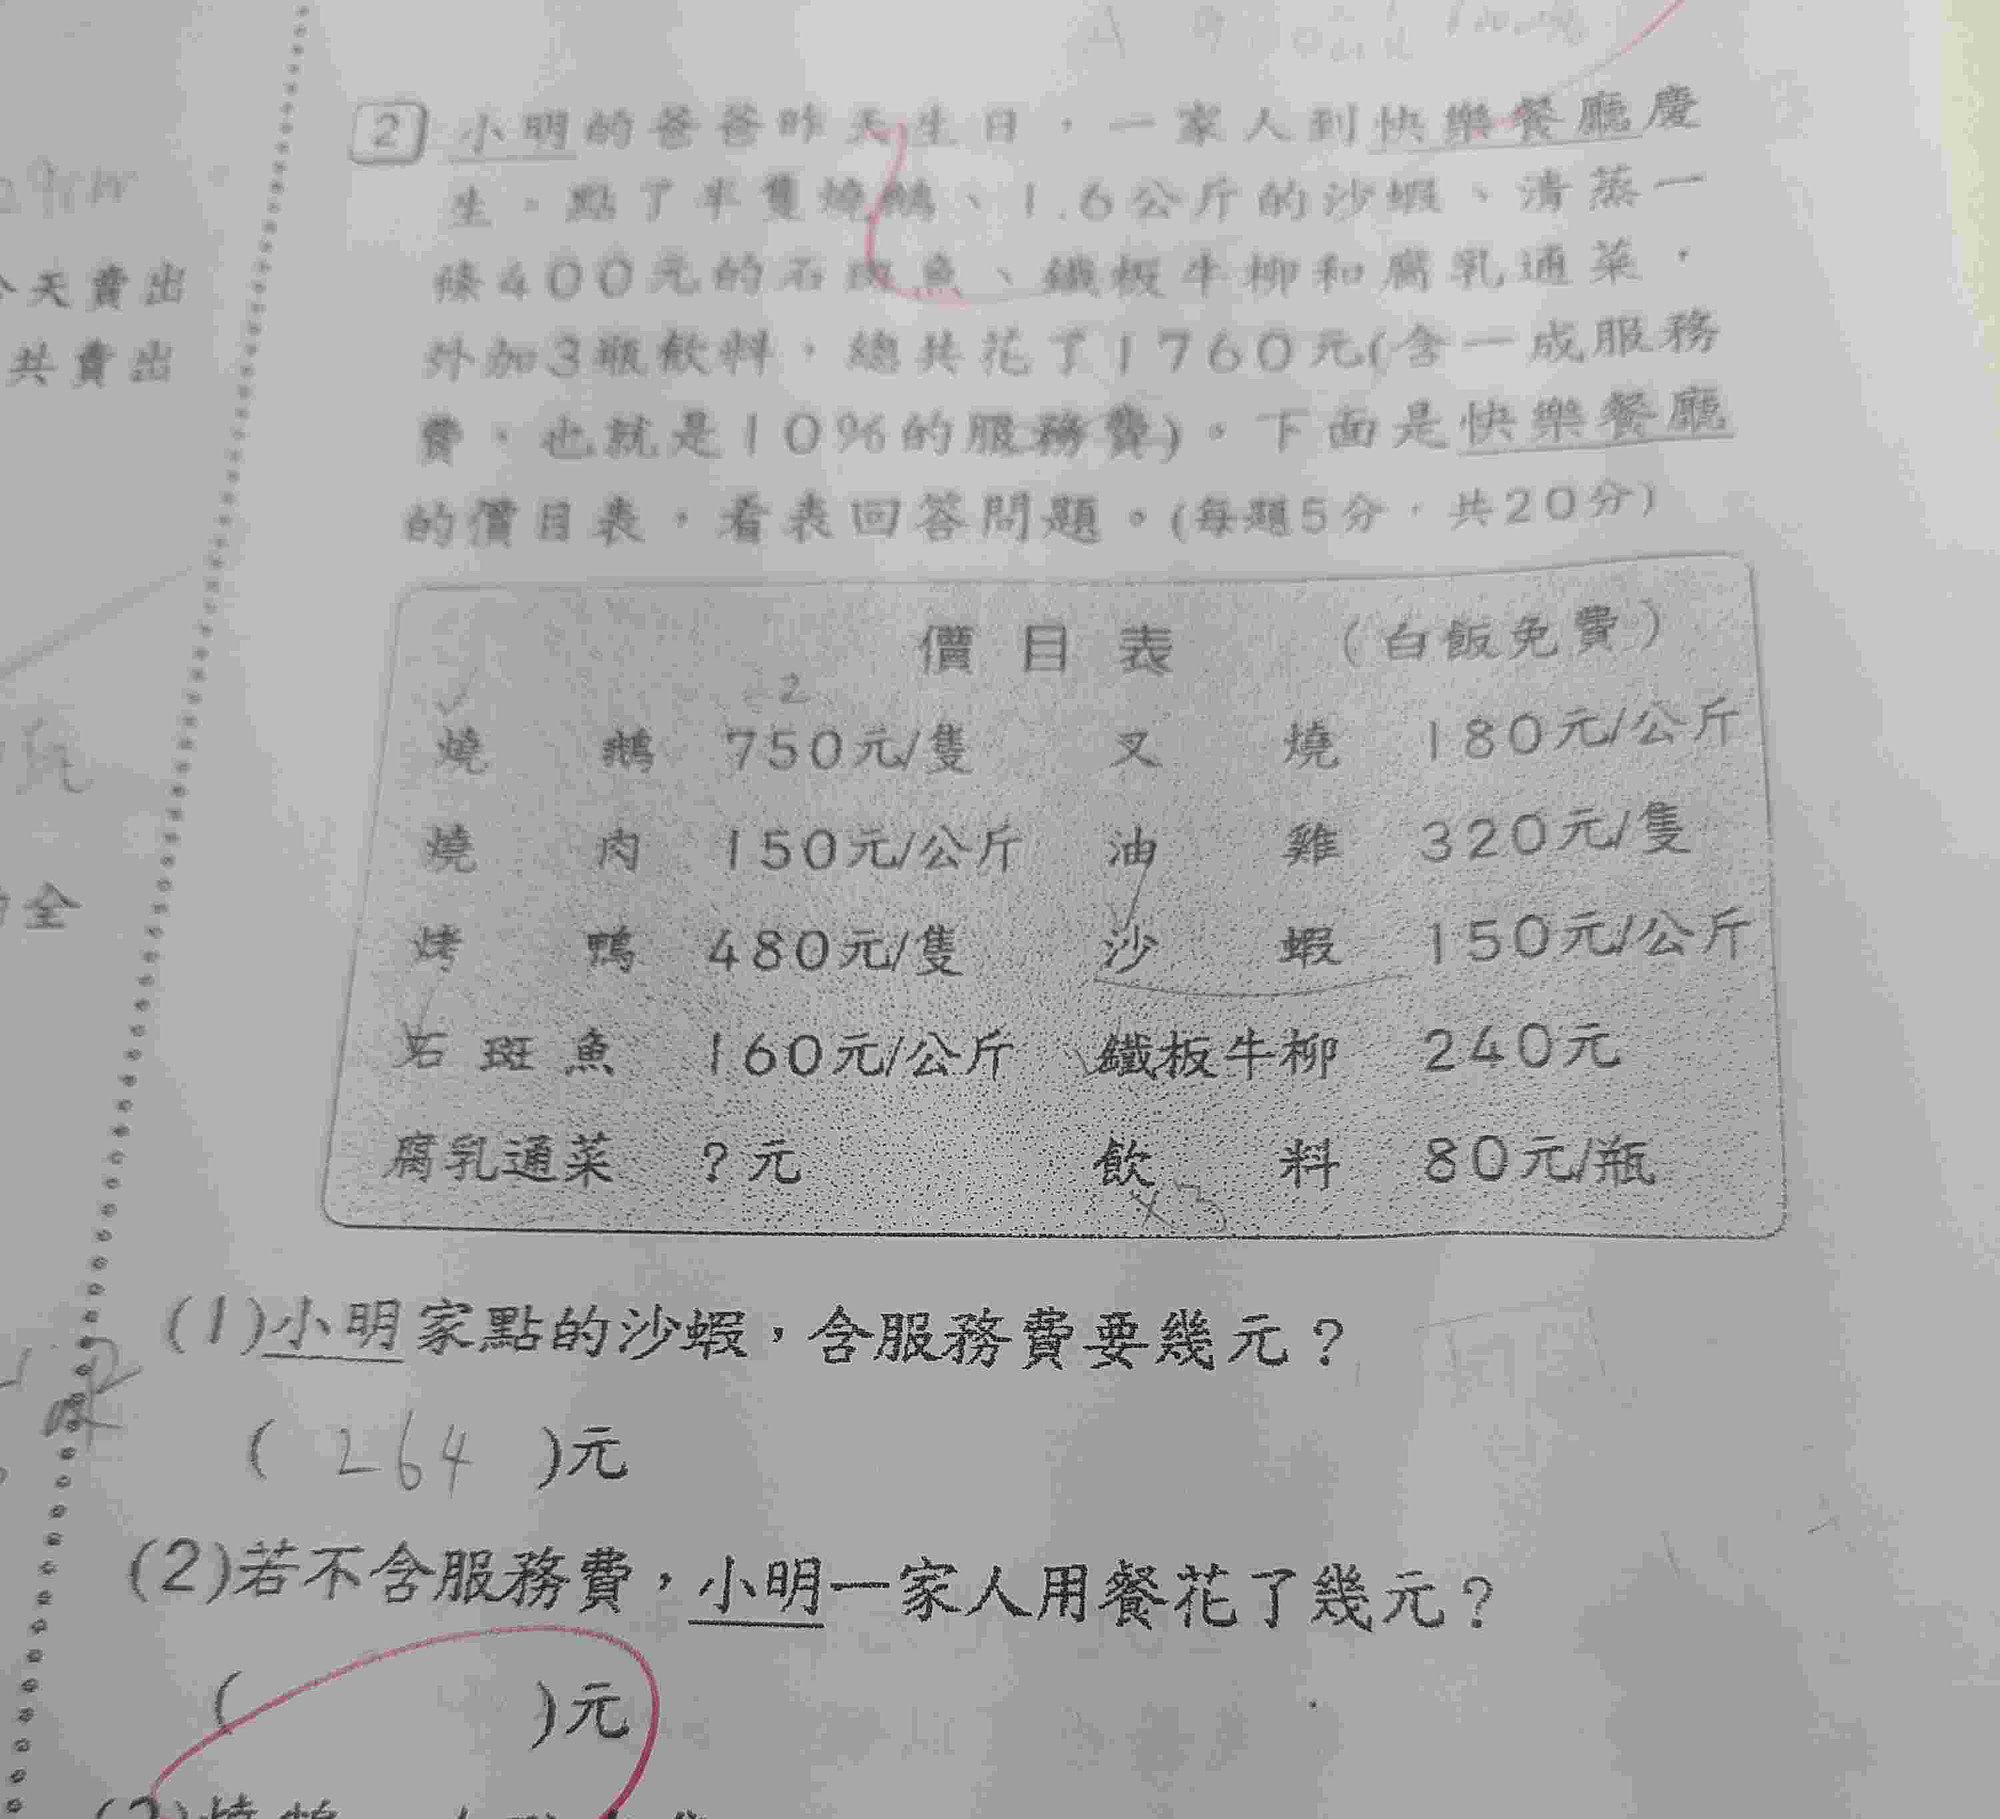 2 小明的爸爸昨天生日，一家人到快樂餐廳慶
生。點了半隻燒鵝、1.6公斤的沙蝦、清蒸一
條400元的石斑魚、鐵板牛柳和腐乳通菜，
外加3瓶飲料，總共花了1760元(含一成服務
費，也就是10%的服務費)。下面是快樂餐廳
的價目表，看表回答問題。(每題5分，共20分)
價目表 (白飯免費)
÷2
燒鵝 750元/隻 叉燒 180元/公斤
燒肉 150元/公斤 油雞 320元/隻
烤鴨 480元/隻 沙蝦 150元/公斤
石斑魚 160元/公斤 鐵板牛柳 240元
腐乳通菜 ?元 飲料 80元/瓶
×3
(1)小明家點的沙蝦，含服務費要幾元？
( 264 )元
(2)若不含服務費，小明一家人用餐花了幾元？
( )元
天費出
共費出
全